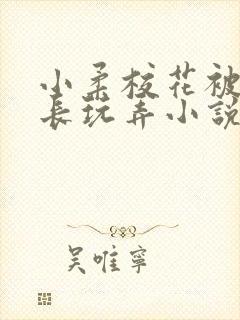 小柔校花被
长玩弄小説
吴唯寧